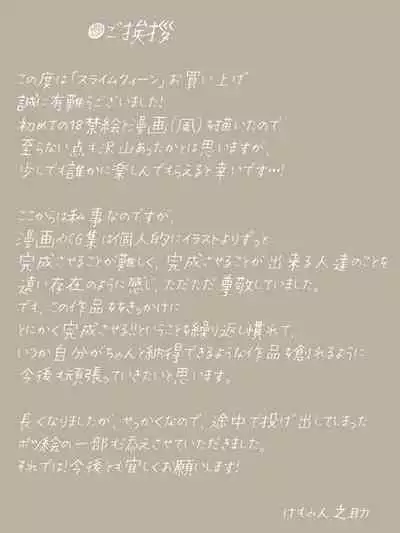 ご挨拶
この度は「スライムクィーン」お買い上げ
誠に有難うございました!
初めての18禁絵と漫画(風)を描いたので
至らない点も沢山あったかとは思いますが、
少しでも誰かに楽しんでもらえると幸いです…!
ここからは私事なのですが、
漫画やCG集は個人的にイラストよりずっと
完成させることが難しく、完成させることが出来る人達のことを
遠い存在のように感じ、ただただ尊敬していました。
でも、この作品をきっかけに
とにかく完成させる!!ということを繰り返し慣れて、
いつか自分がちゃんと納得できるような作品を創れるように
今後も頑張っていきたいと思います。
長くなりましたが、せっかくなので、途中で投げ出してしまった
ボツ絵の一部も添えさせていただきました。
それでは!今後とも宜しくお願いします!
けもみ人之助